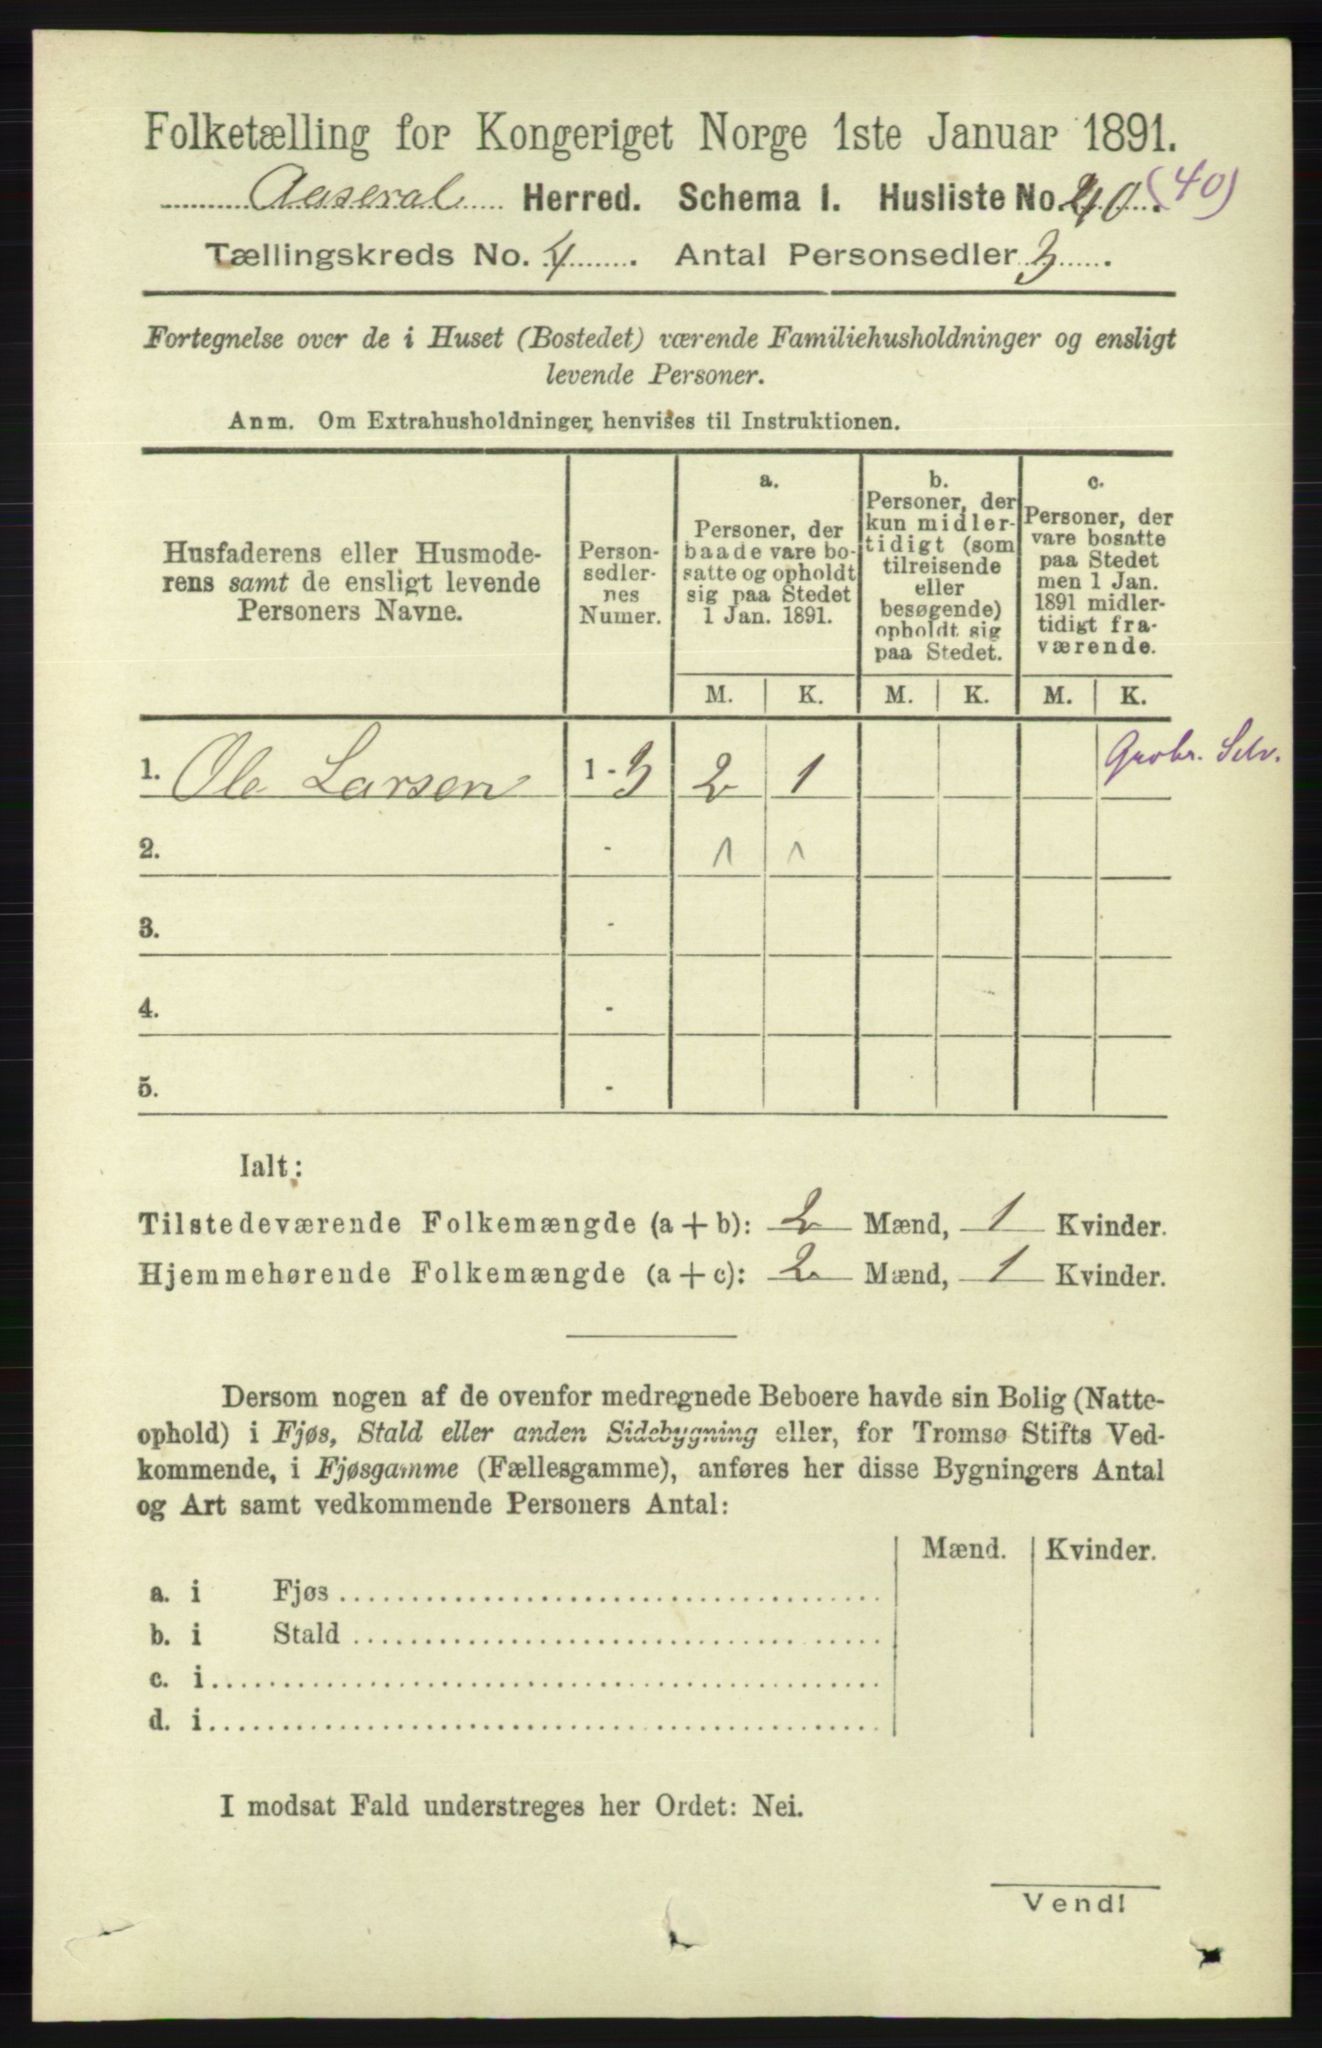 Folketælling for Kongeriget Norge 1ste Januar 1891.
Aaseral Herred. Schema I. Husliste No. 40 (40)
Tællingskreds No. 4. Antal Personsedler 3.
Fortegnelse over de i Huset (Bostedet) værende Familiehusholdninger og ensligt
levende Personer.
Anm. Om Extrahusholdninger henvises til Instruktionen.
Husfaderens eller Husmode-
rens samt de ensligt levende
Personers Navne.
Person-
sedler-
nes
Numer.
a.
Personer, der
baade vare bo-
satte og opholdt
sig paa Stedet
1 Jan. 1891.
b.
Personer, der
kun midler-
tidigt (som
tilreisende
eller
besøgende)
opholdt sig
paa Stedet.
c.
Personer, der
vare bosatte
paa Stedet
men 1 Jan.
1891 midler-
tidigt fra-
værende.
M. K. M. K. M. K.
1. Ole Larsen 1 - 3 2 1 Gaabr. Selv.
2. - 1 1
3. -
4. -
5. -
Ialt:
Tilstedeværende Folkemængde (a + b): 2 Mænd, 1 Kvinder.
Hjemmehørende Folkemængde (a + c): 2 Mænd, 1 Kvinder.
Dersom nogen af de ovenfor medregnede Beboere havde sin Bolig (Natte-
ophold) i Fjøs, Stald eller anden Sidebygning eller, for Tromsø Stifts Ved-
kommende, i Fjøsgamme (Fællesgamme), anføres her disse Bygningers Antal
og Art samt vedkommende Personers Antal:
Mænd. Kvinder.
a. i Fjøs
b. i Stald
c. i
d. i
I modsat Fald understreges her Ordet: Nei.
Vend!